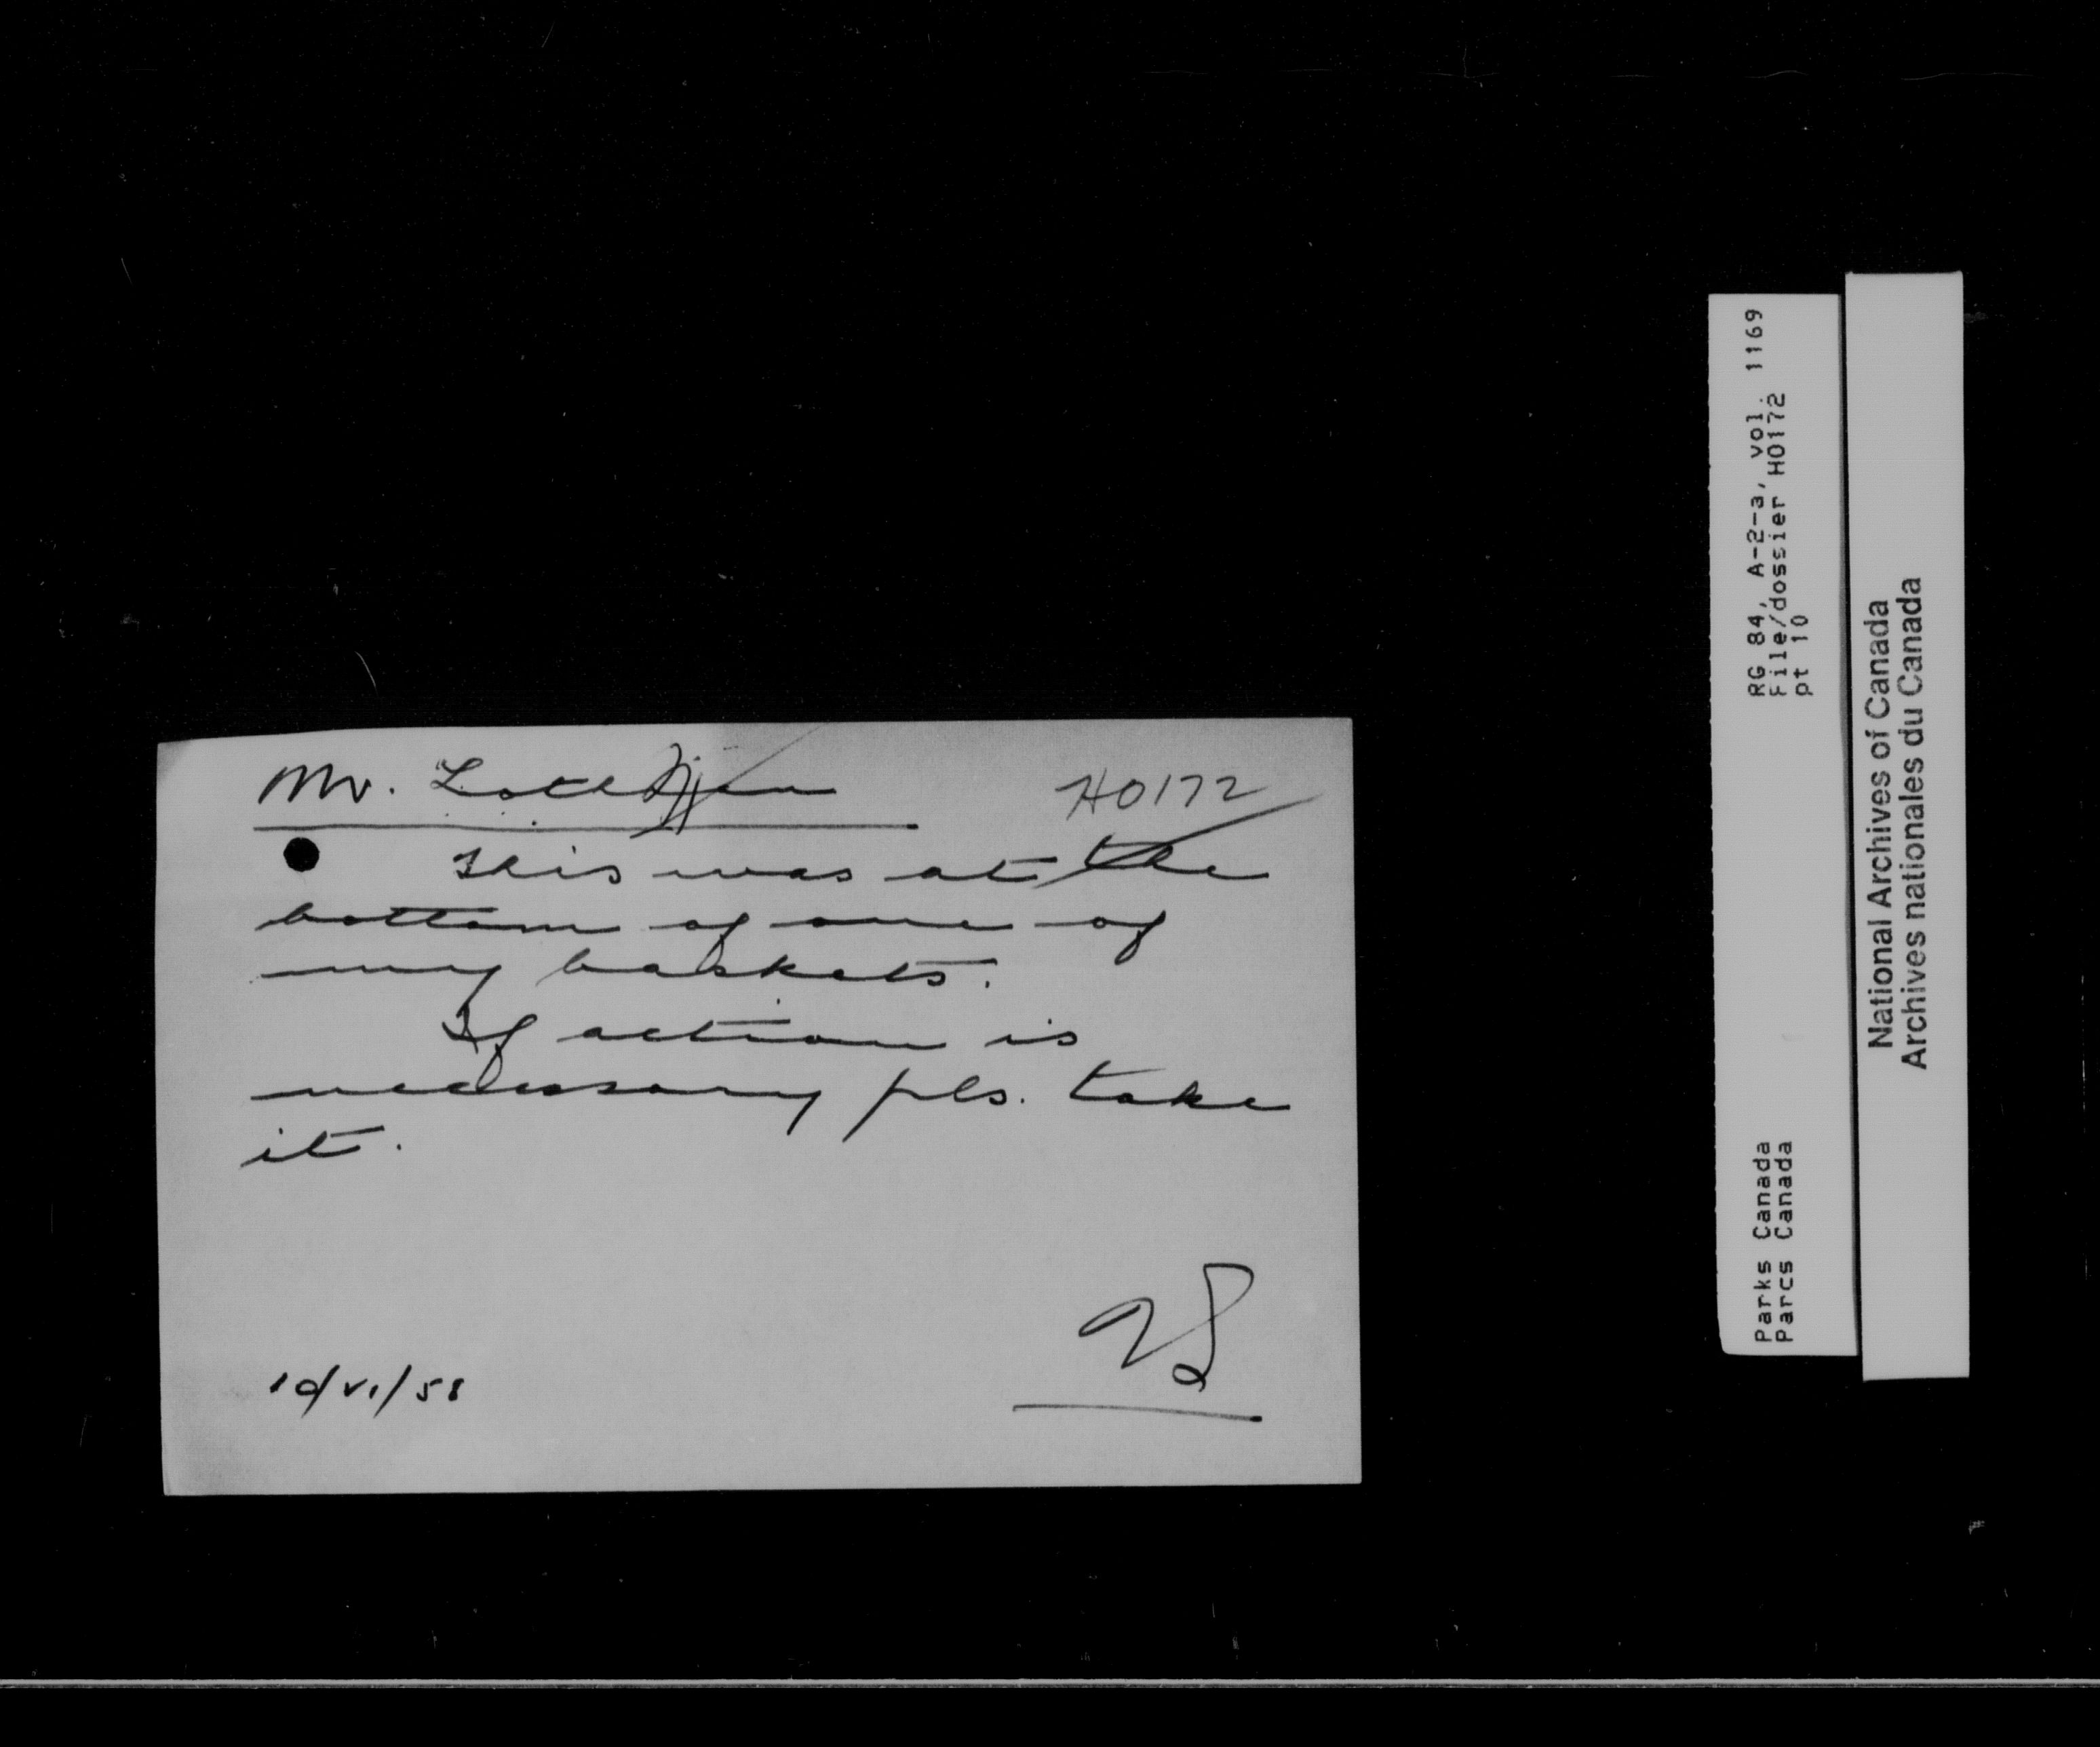 Mr.
H0172
This was at the
bottom of one of
my baskets.
If action is
necessary pls. take
it.
10/VI/58
RG 84, A-2-a, vol. 1169
File/dossier H0172
pt 10
Parks Canada
Parcs Canada
National Archives of Canada
Archives nationales du Canada